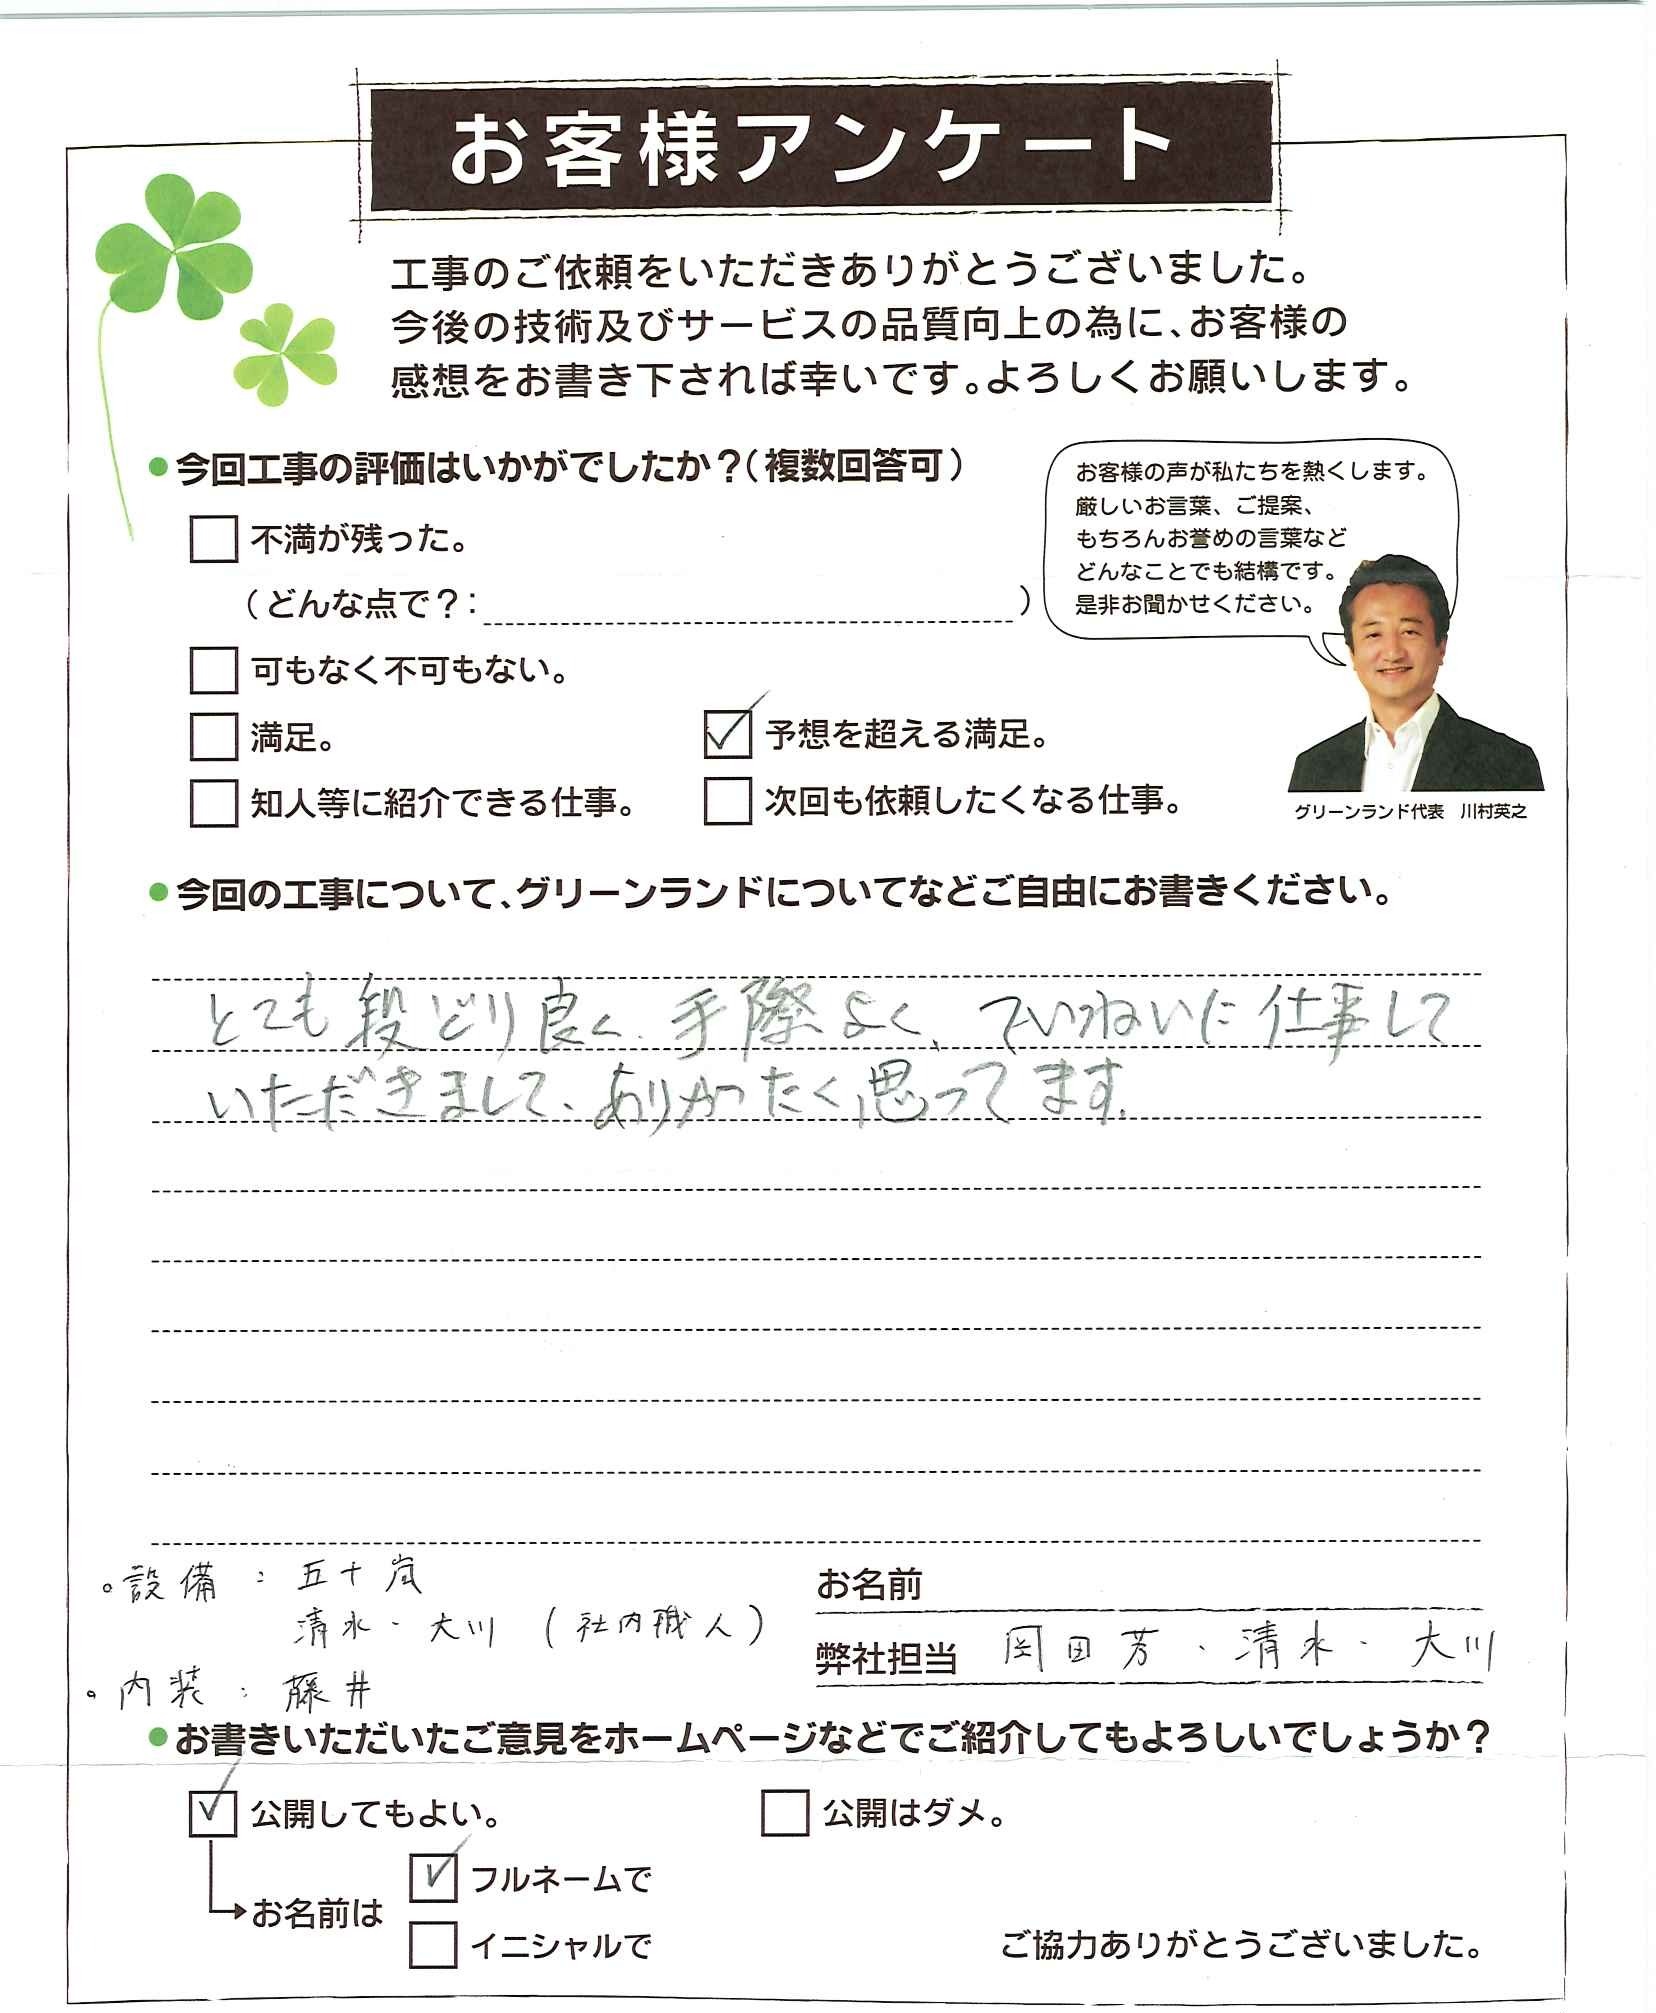 お客様アンケート
工事のご依頼をいただきありがとうございました。
今後の技術及びサービスの品質向上の為に、お客様の
感想をお書き下されば幸いです。よろしくお願いします。
●今回工事の評価はいかがでしたか?(複数回答可)
不満が残った。
(どんな点で?: )
可もなく不可もない。
満足。
予想を超える満足。
知人等に紹介できる仕事。
次回も依頼したくなる仕事。
お客様の声が私たちを熱くします。
厳しいお言葉、ご提案、
もちろんお誉めの言葉など
どんなことでも結構です。
是非お聞かせください。
グリーンランド代表 川村英之
●今回の工事について、グリーンランドについてなどご自由にお書きください。
とても段どり良く、手際よく、ていねいに仕事して
いただきまして、ありがたく思ってます。
。設備:五十嵐
清水・大川(社内職人)
。内装:藤井
お名前
弊社担当 岡田芳・清水・大川
●お書きいただいたご意見をホームページなどでご紹介してもよろしいでしょうか?
公開してもよい。
公開はダメ。
お名前は
フルネームで
イニシャルで
ご協力ありがとうございました。